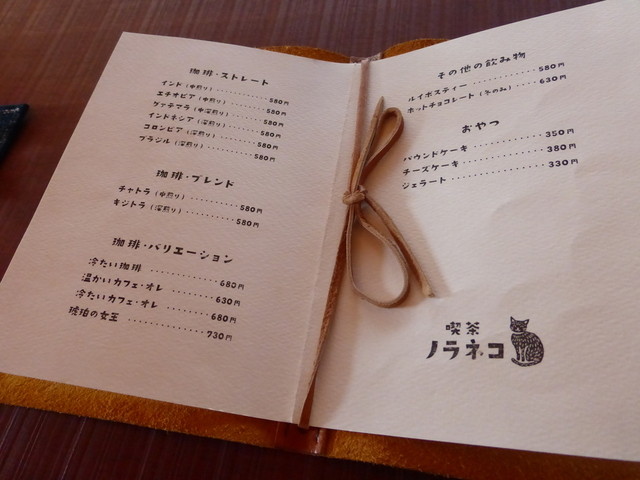 珈琲・ストレート
インド(中煎り)・・・・・・・・・・580円
エチオピア(中煎り)・・・・・・・・580円
グァテマラ(中深煎り)・・・・・・・580円
インドネシア(深煎り)・・・・・・・580円
コロンビア(深煎り)・・・・・・・・580円
ブラジル(深煎り)・・・・・・・・・580円
珈琲・ブレンド
チャトラ(中煎り)・・・・・・・・・580円
キジトラ(深煎り)・・・・・・・・・580円
珈琲・バリエーション
冷たい珈琲・・・・・・・・・・・・680円
温かいカフェ・オレ・・・・・・・・630円
冷たいカフェ・オレ・・・・・・・・680円
琥珀の女王・・・・・・・・・・・・730円
その他の飲み物
ルイボスティー・・・・・・・・・・580円
ホットチョコレート(冬のみ)・・・・630円
おやつ
パウンドケーキ・・・・・・・・・・350円
チーズケーキ・・・・・・・・・・・380円
ジェラート・・・・・・・・・・・・330円
喫茶
ノラネコ